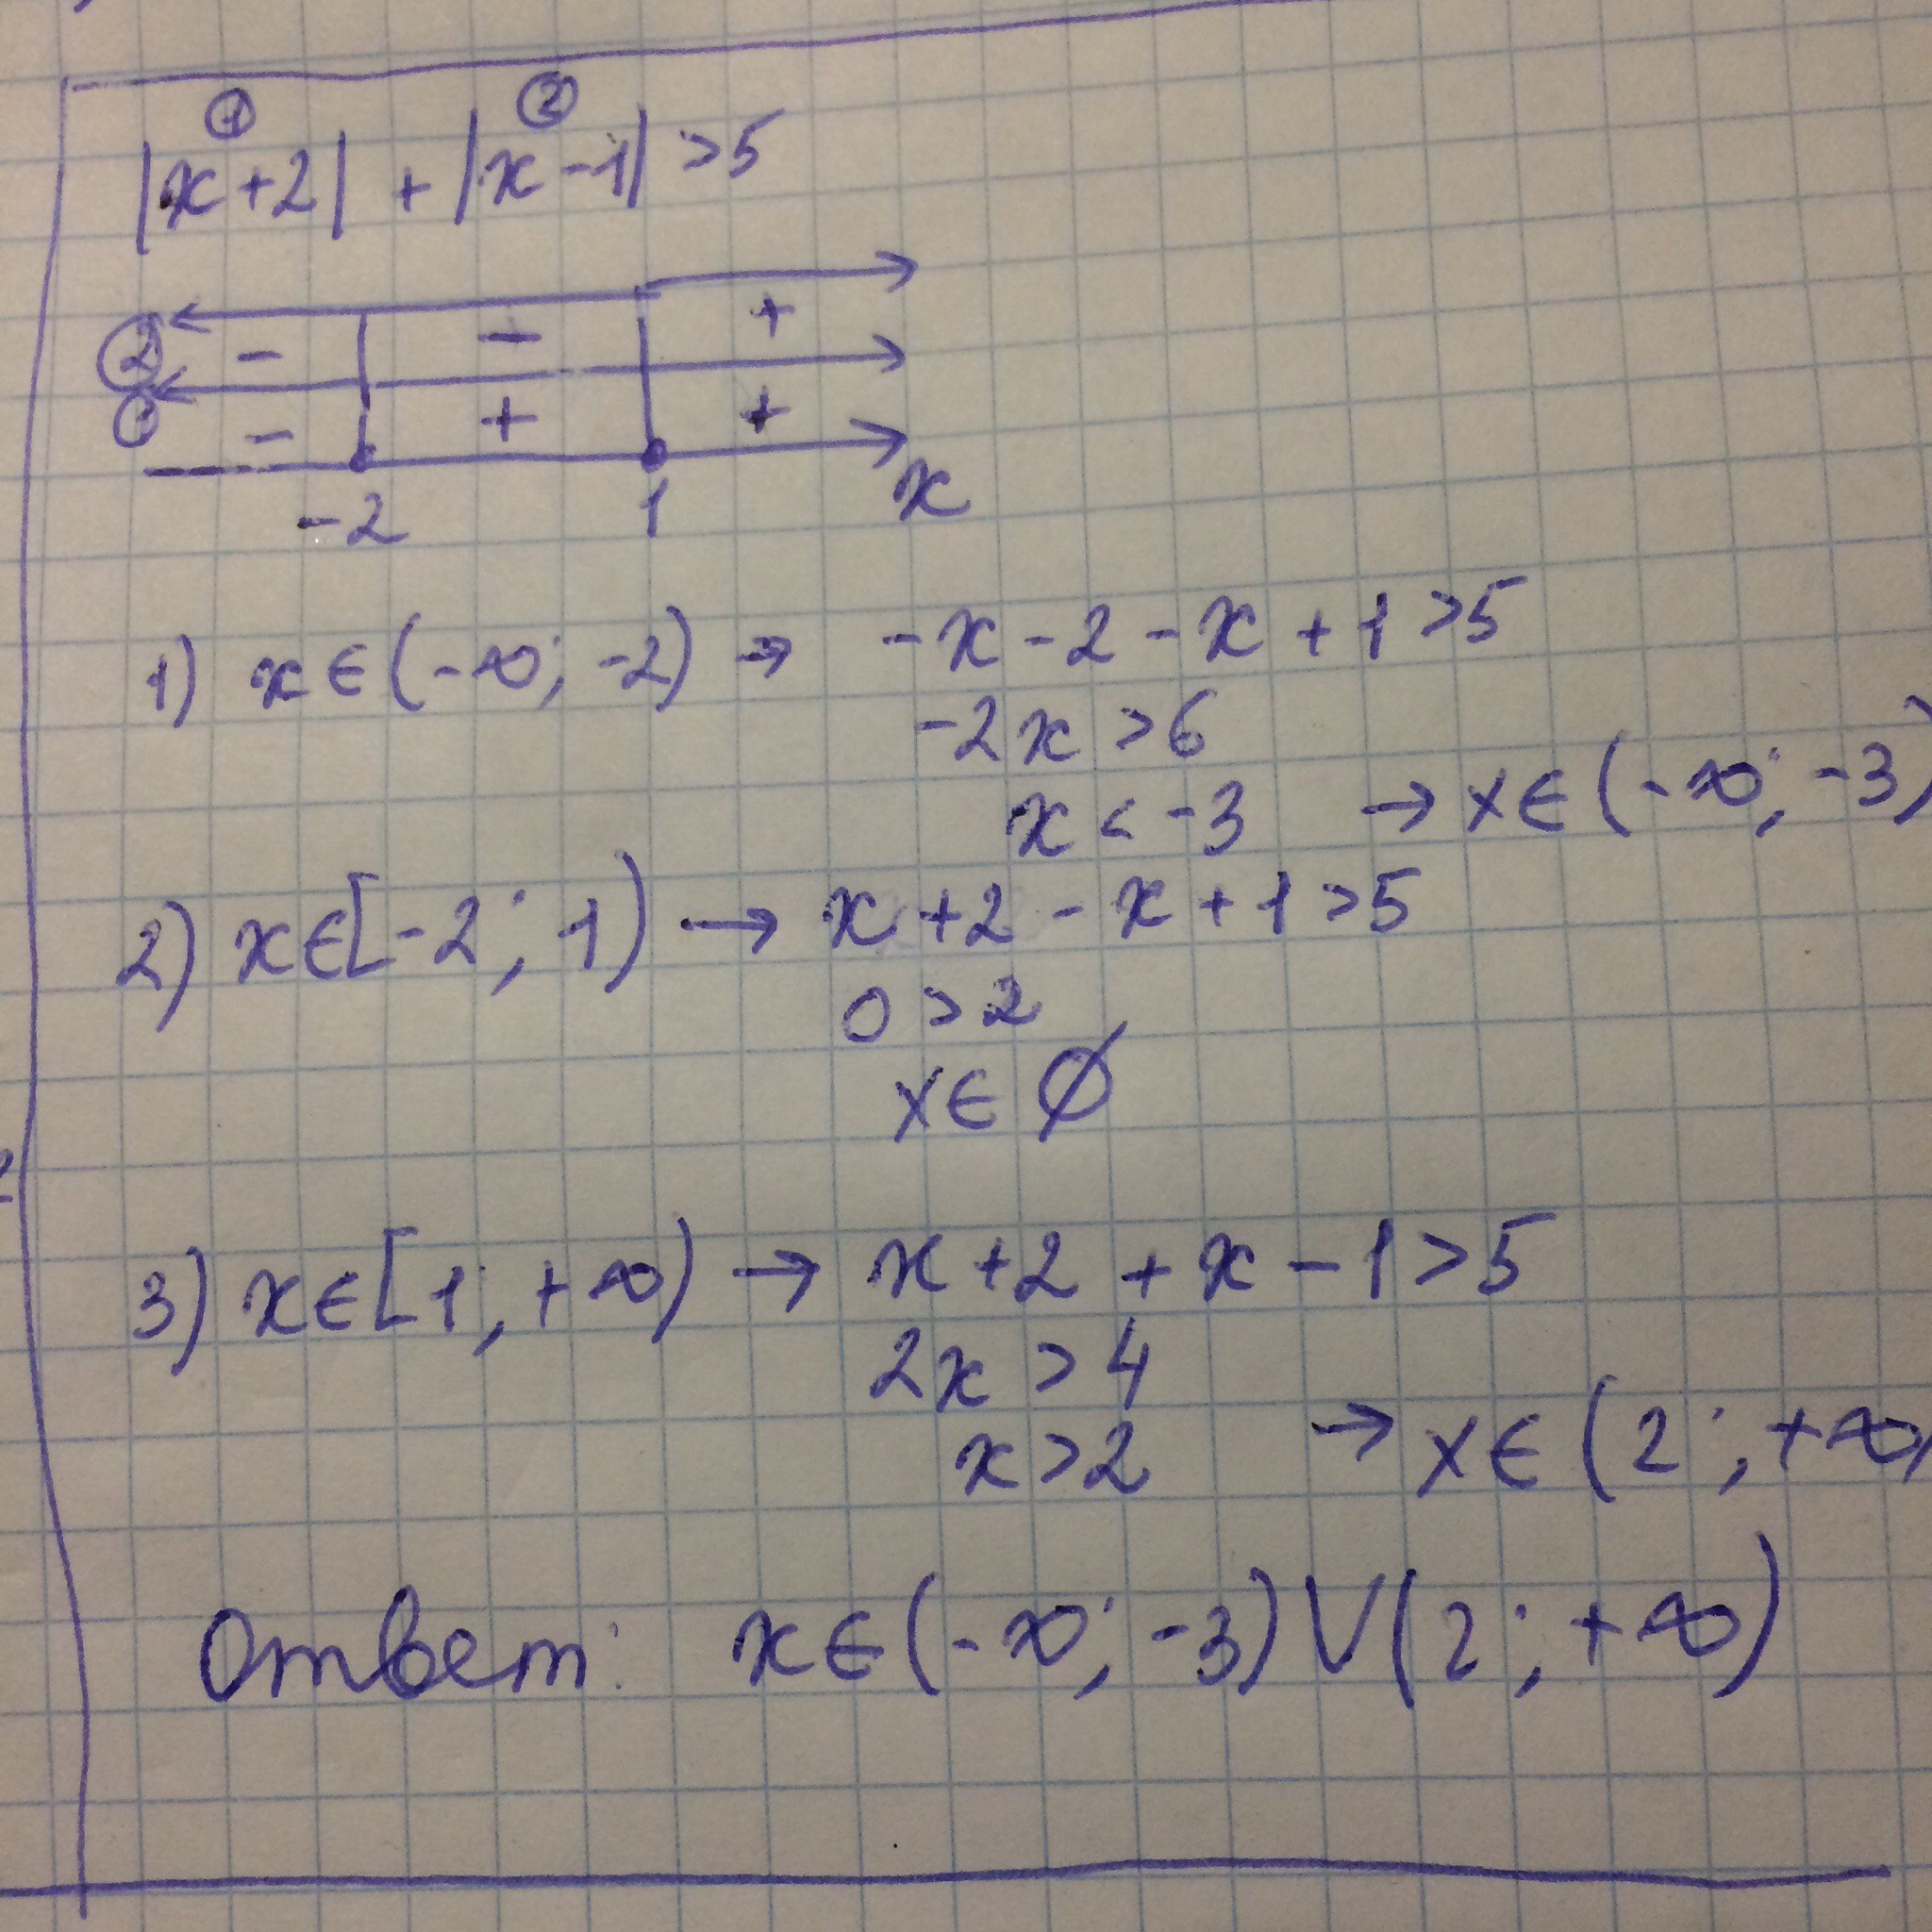 ① ②
|x+2| + |x-1| >5
② - - +
① - + +
-2 1 x
1) x∈(-∞; -2) → -x-2-x+1>5
-2x >6
x < -3 → x∈(-∞; -3)
2) x∈[-2; 1) → x+2-x+1>5
0>2
x∈ ∅
3) x∈[1; +∞) → x+2+x-1>5
2x >4
x>2 → x∈(2; +∞)
Ответ: x∈(-∞; -3)V(2; +∞)